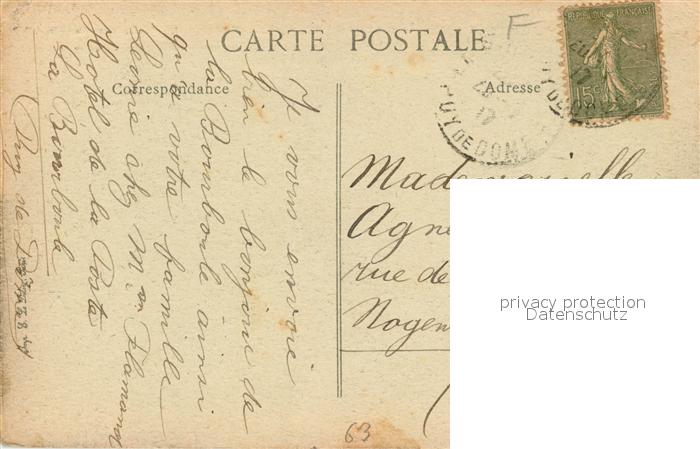 CARTE POSTALE
F
Correspondance
Adresse
REPUBLIQUE FRANÇAISE
15c
PUY DE DOME
Je vous envoie
bien le bonjour de
la Bourboule ainsi
qu'a votre famille
chez Mme Flamand
Hotel de la Poste
La Bourboule
Puy de Dome
Mademoiselle
Agne
rue de
Nogen
63
privacy protection
Datenschutz